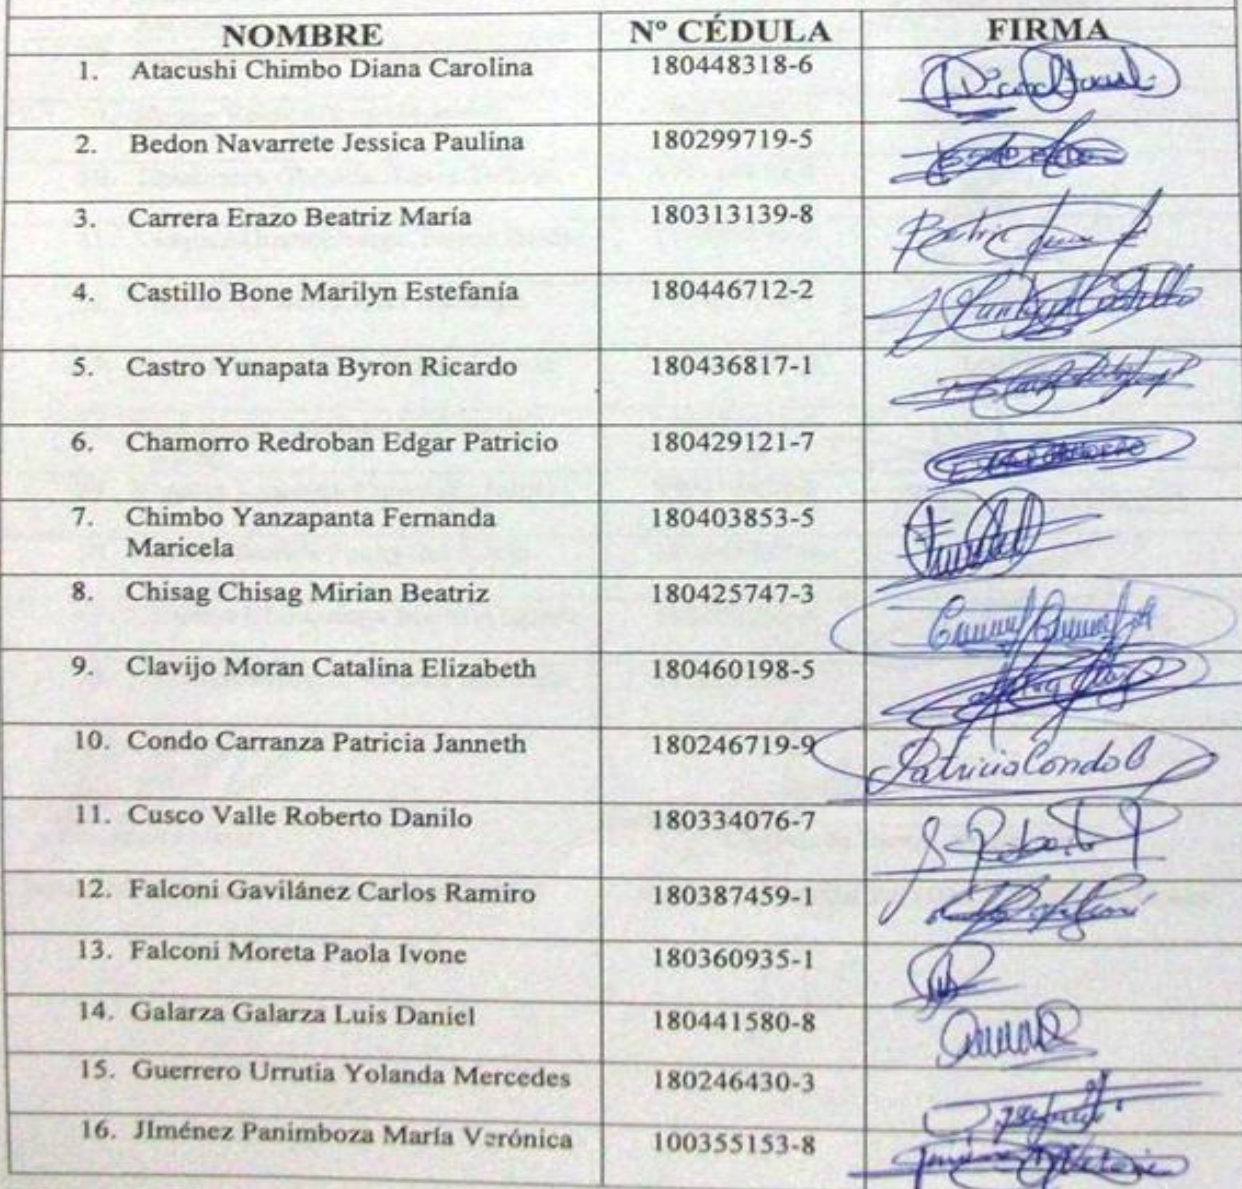 NOMBRE Nº CÉDULA FIRMA
1. Atacushi Chimbo Diana Carolina 180448318-6
2. Bedon Navarrete Jessica Paulina 180299719-5
3. Carrera Erazo Beatriz María 180313139-8
4. Castillo Bone Marilyn Estefanía 180446712-2
5. Castro Yunapata Byron Ricardo 180436817-1
6. Chamorro Redroban Edgar Patricio 180429121-7
7. Chimbo Yanzapanta Fernanda 180403853-5
Maricela
8. Chisag Chisag Mirian Beatriz 180425747-3
9. Clavijo Moran Catalina Elizabeth 180460198-5
10. Condo Carranza Patricia Janneth 180246719-9
11. Cusco Valle Roberto Danilo 180334076-7
12. Falconi Gavilánez Carlos Ramiro 180387459-1
13. Falconi Moreta Paola Ivone 180360935-1
14. Galarza Galarza Luis Daniel 180441580-8
15. Guerrero Urrutia Yolanda Mercedes 180246430-3
16. JIménez Panimboza María Verónica 100355153-8